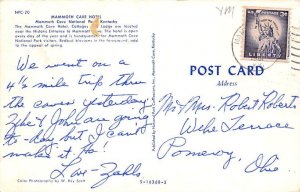 NPC-20
MAMMOTH CAVE HOTEL
Mammoth Cave National Park, Kentucky
The Mammoth Cave Hotel, Cottages and Lodge are located
near the Historic Entrance to Mammoth Cave. The hotel is open
every day of the year and is the headquarters for Mammoth Cave
National Park visitors. Redbud blossoms in the foreground add
to the appeal of spring.
We went on a
4½ mile trip thru
the cave yesterday
& John are going
to-day but I can't
make it. Ha!
Love-
Color Photography by W. Ray Scott
S-16368-3
POST CARD
Address
LIBERTY
3¢
Mr & Mrs. Robert Roberts
Terrace
Pomeroy,
Ohio